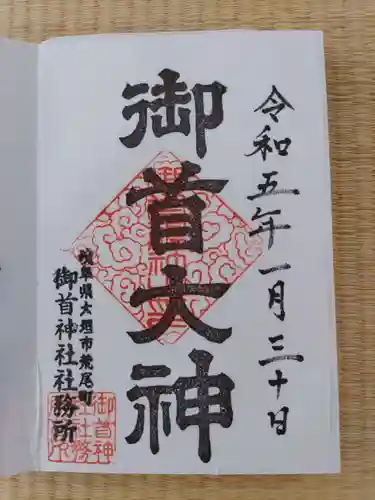 令和五年一月三十日
御首大神
岐阜県大垣市荒尾町
御首神社社務所
御首神
社社務
所之印